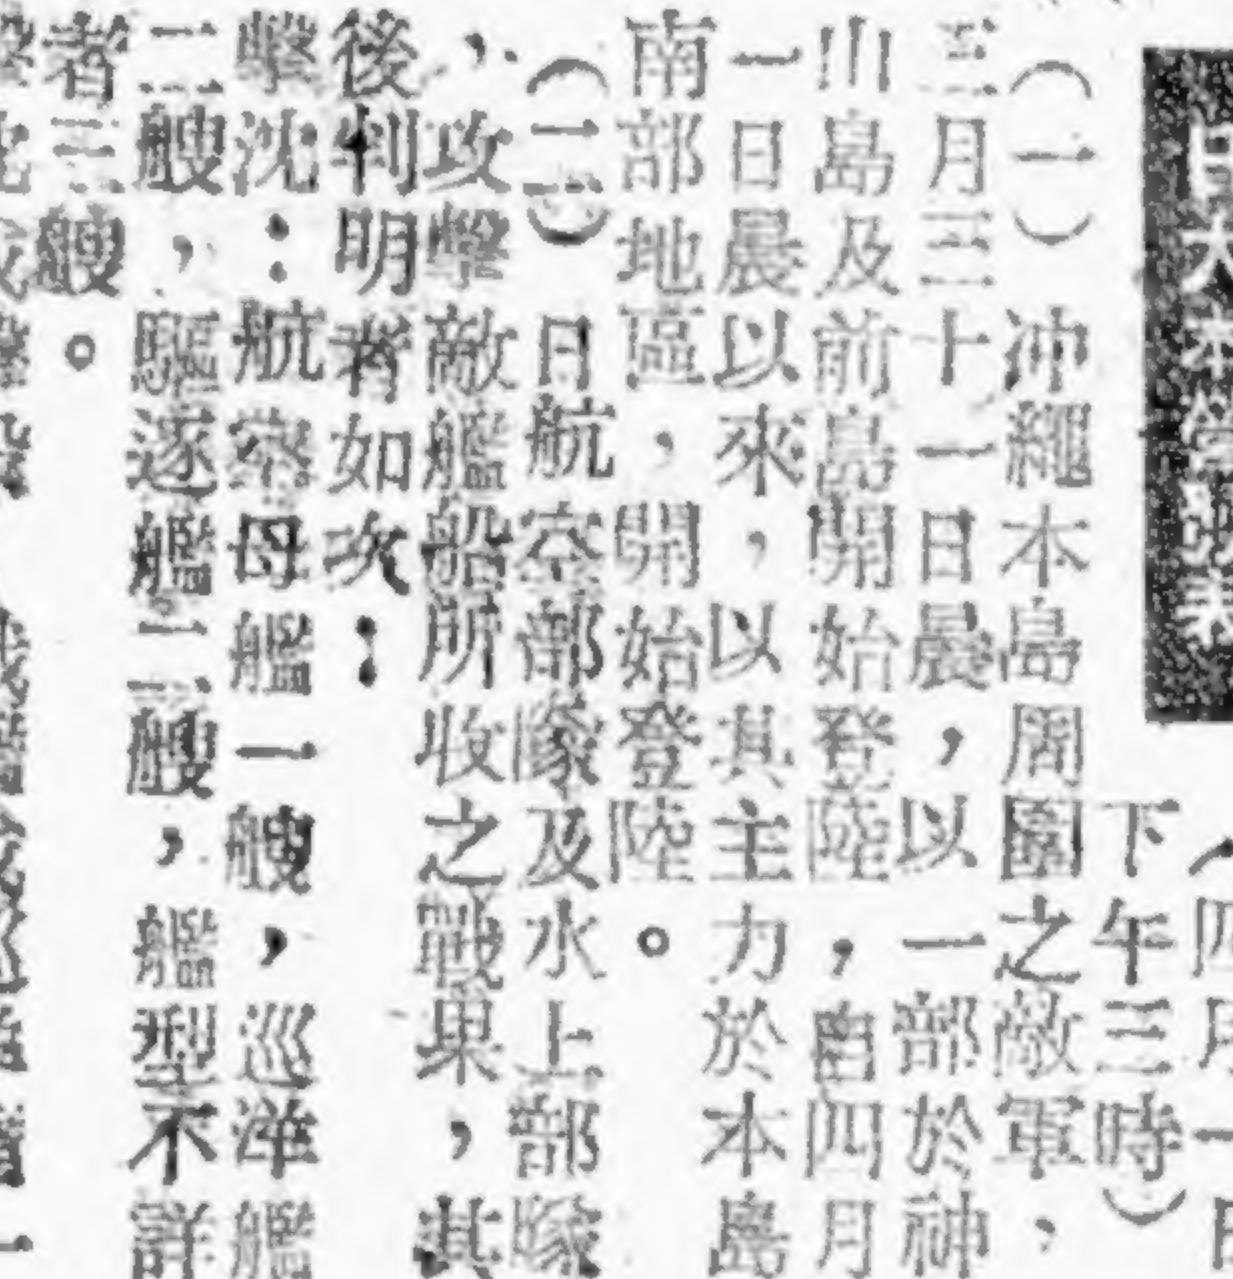 日大本營發表
（四月一日
下午三時）
（一）沖繩本島周圍之敵軍，
三月三十一日晨，以一部於神
山島及前島開始登陸，自四月
一日晨以來，以其主力於本島
南部地區，開始登陸。
（二）日航空部隊及水上部隊
，攻擊敵艦船所收之戰果，其
後判明者如次：
擊沈：航空母艦一艘，巡洋艦
二艘，驅逐艦二艘，艦型不詳
者三艘。